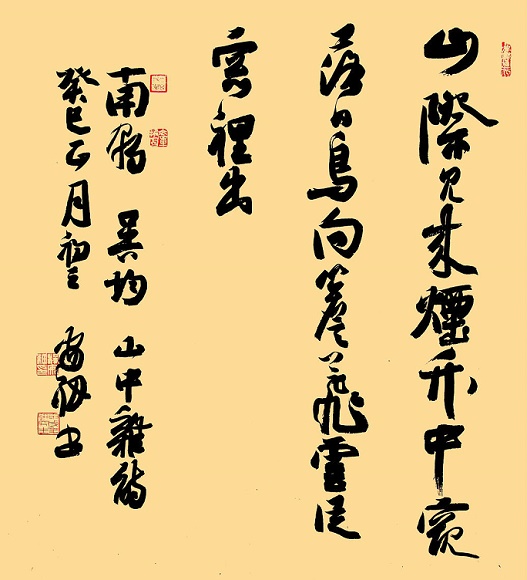 山際見來煙竹中窺
落日鳥向簷上飛雲從
窗裡出
南朝 吳均 山中雜詩
癸巳正月初三 書